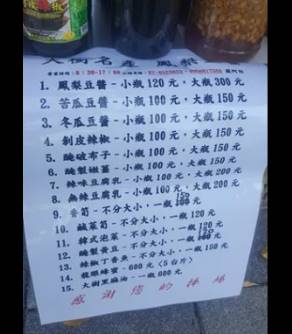 大樹名產 鳳梨
1. 鳳梨豆醬-小瓶120元，大瓶300元
2. 苦瓜豆醬-小瓶100元，大瓶150元
3. 冬瓜豆醬-小瓶100元，大瓶150元
4. 剝皮辣椒-小瓶100元，大瓶150元
5. 醃破布子-小瓶100元，大瓶150元
6. 醃製嫩薑-小瓶100元，大瓶150元
7. 辣味豆腐乳-小瓶100元，大瓶200元
8. 無辣豆腐乳-小瓶100元，大瓶200元
9. 醬筍-不分大小，一瓶150元
10. 鹹菜筍-不分大小，一瓶120元
11. 韓式泡菜-不分大小，一瓶120元
12. 醃製黃豆-不分大小，一瓶
13. 辣椒丁香魚-不分大小，一瓶150元
14. 龍眼蜂蜜-600元(5台斤)
15. 大樹黑麻油-一瓶600元
感謝您的